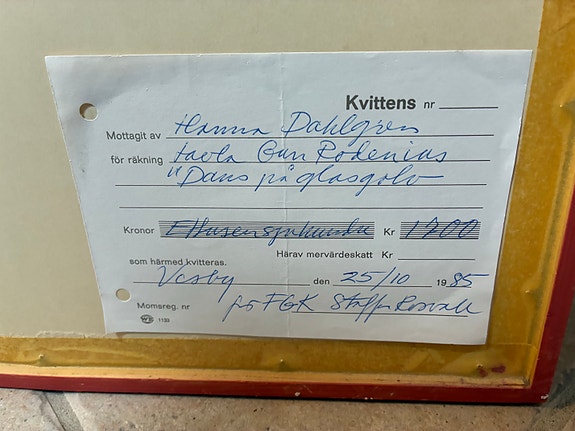 Kvittens nr
Mottagit av Hanna Dahlgren
för räkning tavla Gun Rodenius
"Dans på glasgolv
Kronor Ettusensjuhundra Kr 1700
Härav mervärdeskatt Kr
som härmed kvitteras.
Visby den 25/10 1985
Momsreg. nr för FGK Staffan Rosvall
1133